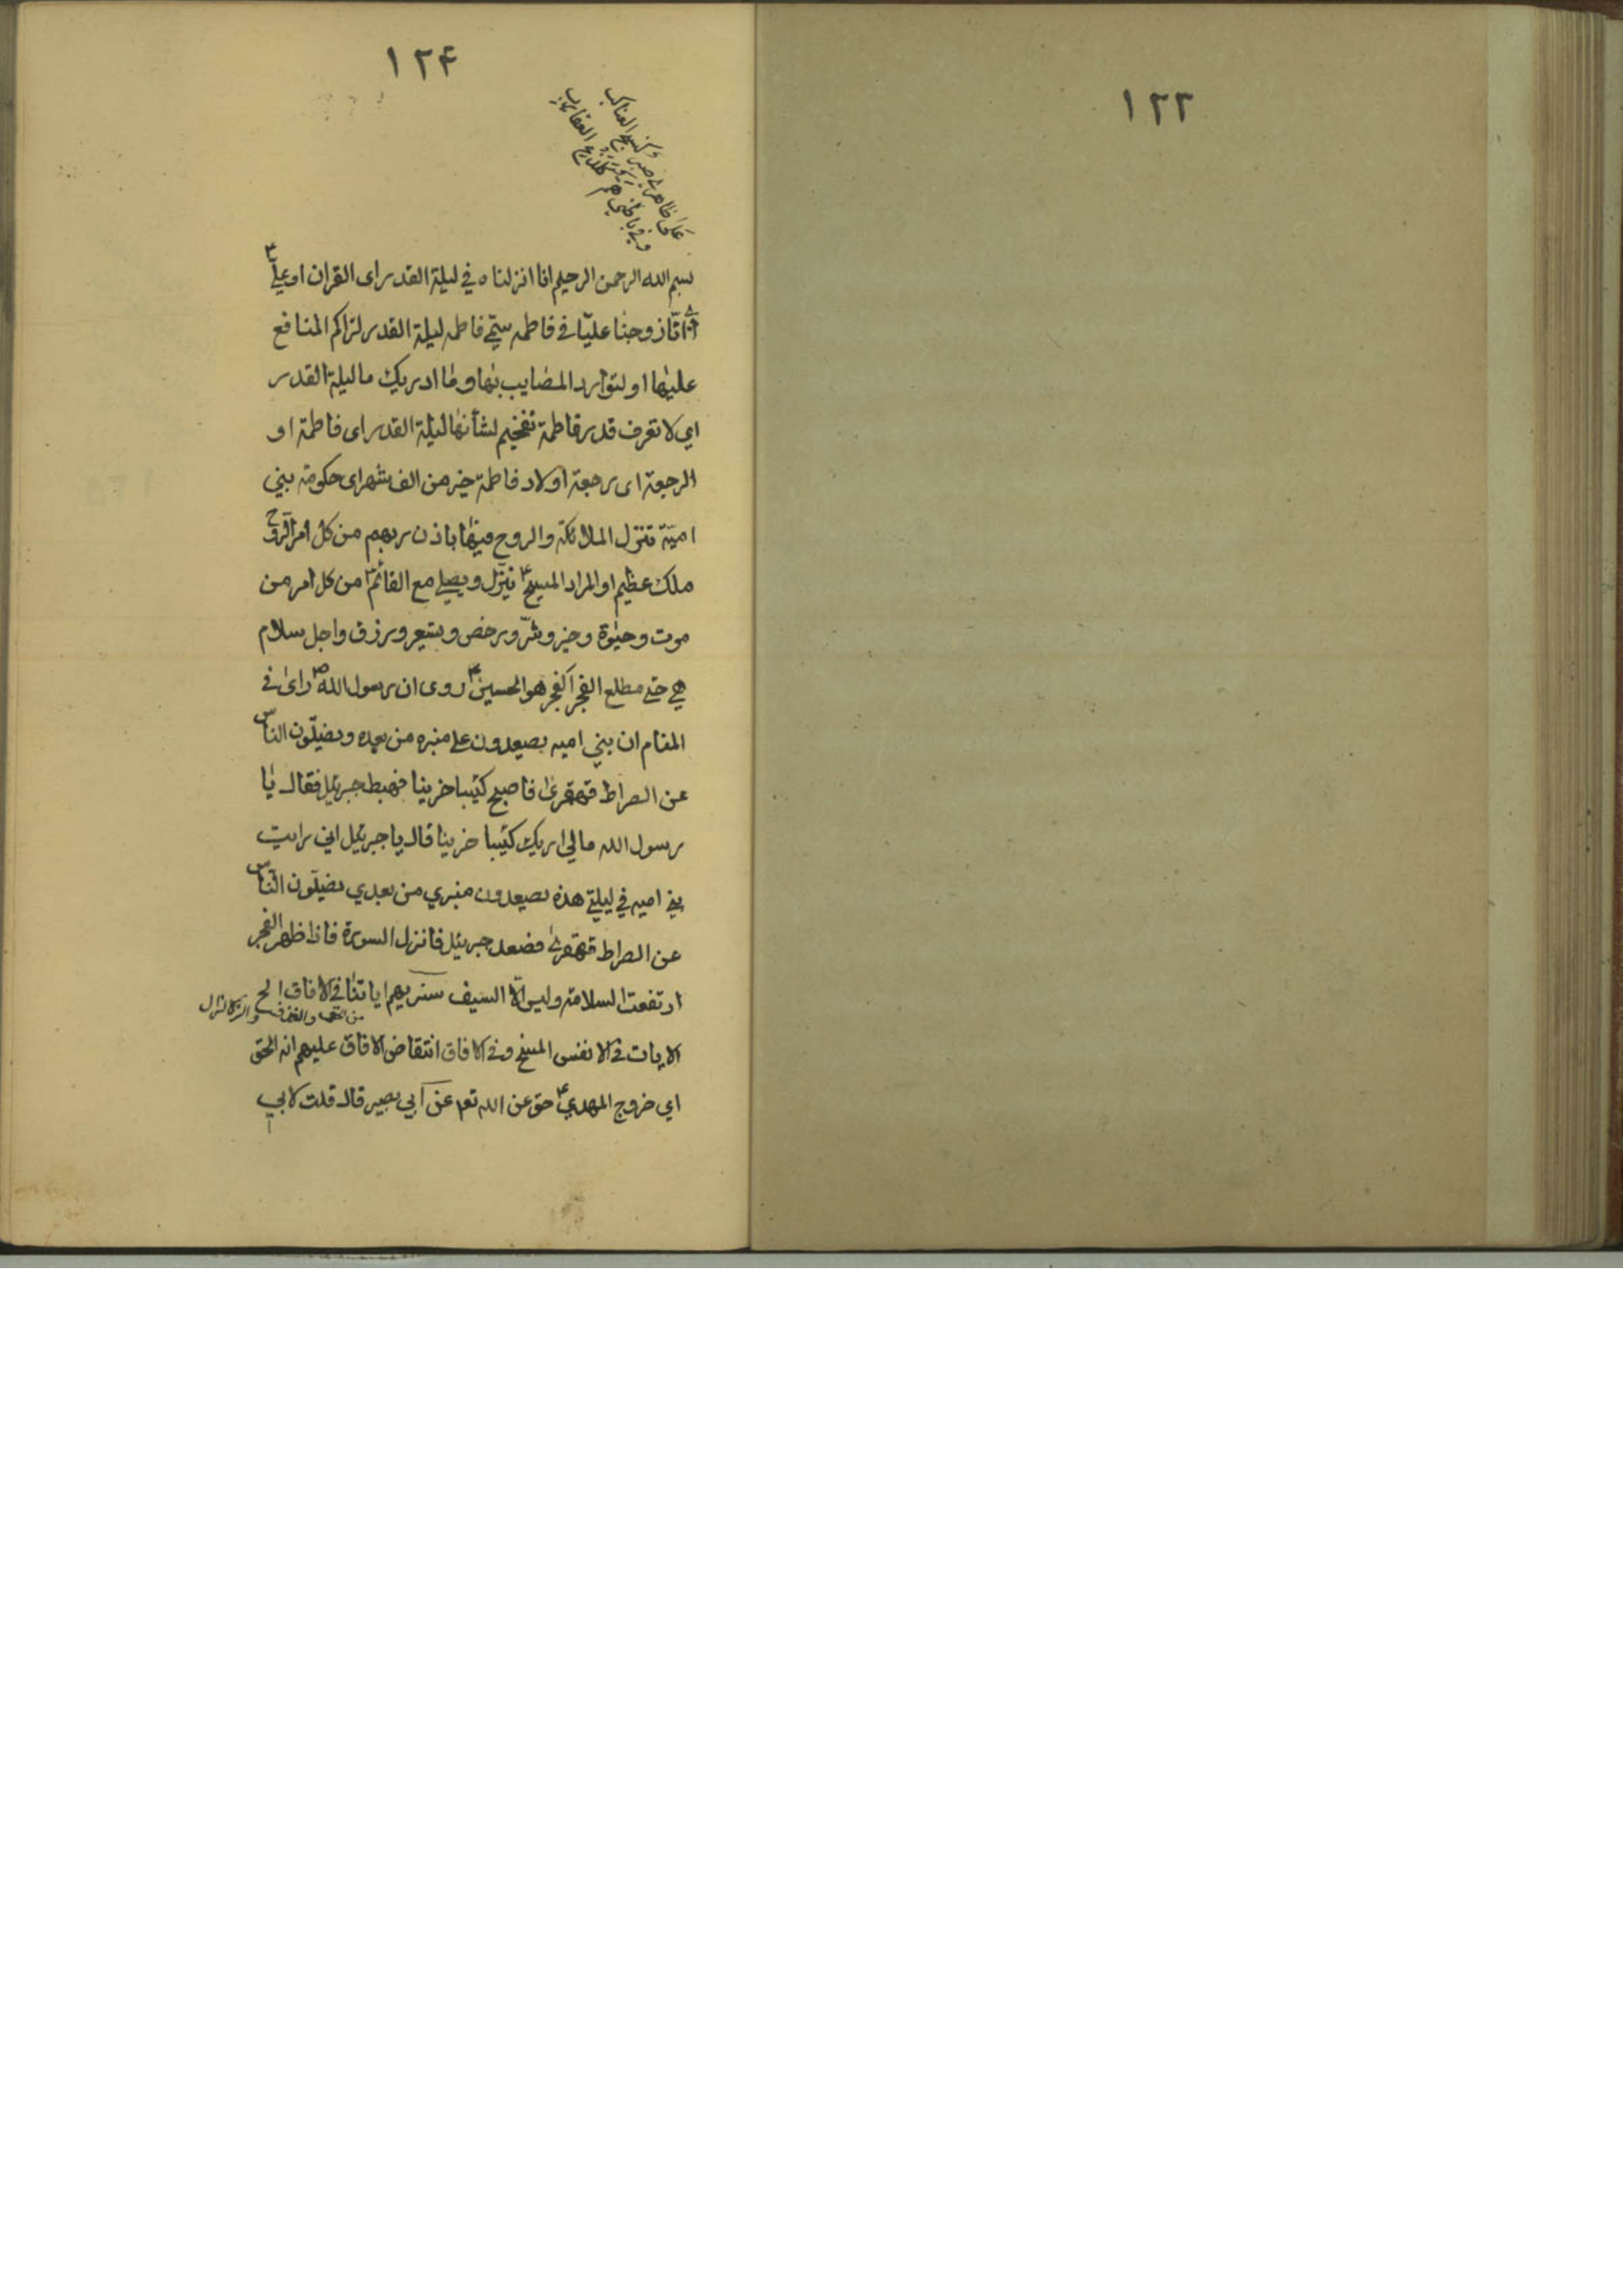 ١٢٢
١٢۴
على ظاهري صبر كنسج العناكب
وفي باطني هم كلدغ العقارب
بسم الله الرحمن الرحيم انا انزلناه في ليلة القدر اى القران او علي ع
اى انا زوجنا عليا في فاطمه ستمي فاطمه ليلة القدر لتراكم المنافع
عليها او لتوارد المصايب بها وما ادريك ما ليلة القدر
اي لا تعرف قدر فاطمة تفخيم لشأنها ليلة القدر اى فاطمة او
الرجعة اى رجعة اولاد فاطمة خير من الف شهر اى حكومة بني
امية تنزل الملائكة والروح فيها باذن ربهم من كل امر الروح
ملك عظيم او المراد المسيح ع ينزل ويصلي مع القائم ع من كل امر من
موت وحيوة وخير وشر ورخص وسعر ورزق واجل سلام
هي حتى مطلع الفجر الفجر هو الحسين ع روى ان رسول الله ص راى في
المنام ان بني اميه يصعدون على منبره من بعده ويضلّون الناس
عن الصراط قهقرى فاصبح كئيبا حزينا فهبط جبرئيل فقال يا
رسول الله مالي اريك كئيبا حزينا قال يا جبرئيل اني رايت
بني اميه في ليلتي هذه يصعدون منبري من بعدي يضلّون النّاس
عن الصراط قهقرى فصعد جبرئيل فانزل السورة فاذا ظهر الفجر
ارتفعت السلامة وليس الّا السيف سنريهم اياتنا في الافاق الخ
من القحف والقذف والزلازل
الايات في الانفس المسخ وفي الافاق انتقاض الافاق عليهم انه الحق
اي خروج المهدي ع حق عن الله تعم عن ابي بصير قال قلت لابي